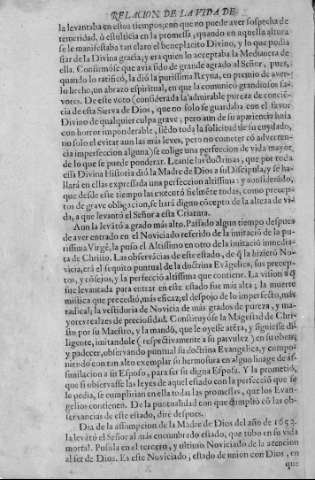 RELACION DE LA VIDA DE
la levantaba en estos tiempos; con que no puede aver sospecha de
temeridad, ò estulticia en la promessa, quando en aquella altura
se le manifestaba tan claro el beneplacito Divino, y lo que podia
fiar de la Divina gracia, y era quien lo aceptaba la Medianera de
ella. Confirmòse que avia sido de grande agrado al Señor, pues,
quando lo ratificò, la diò la purissima Reyna, en premio de aver-
lo hecho, un abrazo espiritual, en que la comunicò grandiosos fa-
vores. De este voto (considerada la admirable pureza de concié-
cia de esta Sierva de Dios, que no solo se guardaba con el favor
Divino de qualquier culpa grave; pero aun de su apariencia huìa
con horror imponderable, siédo toda la solicitud de su cuydado,
no solo el evitar aun las mas leves, pero no cometer cõ adverten-
cia imperfeccion alguna) se colige una perfeccion de vida mayor,
de lo que se puede ponderar. Leanse las doctrinas, que por toda
esta Divina Historia diò la Madre de Dios a su Discipula, y se ha-
llarà en ellas expressada una perfeccion altissima: y considerádo,
que desde este tiempo las executò Sor todas, como precep-
tos de grave obligacion, se harà digno cõcepto de la alteza de vi-
da, a que levantò el Señor a esta Criatura.
Aun la levatò a grado mas alto. Passado algun tiempo despues
de aver entrado en el Noviciado referido de la imitació de la pu-
rissima Virgé, la puso el Altissimo en otro de la imitació inmedia-
ta de Christo. Las observácias de este estado, de q̃ la hizierõ No-
vicia, erã el sequito puntual de la doctrina Evágelica, sus precep-
tos, y cõsejos, y la perfecció altissima que contiene. La vision à q̃
fue levantada para entrar en este estado fue mas alta; la muerte
mistica que precediò, mas eficaz; el despojo de lo imperfecto, mas
radical; la vestidura de Novicia de mas grados de pureza, y ma-
yores realzes de preciosidad. Constituyòse la Magestad de Chri-
sto por su Maestro, y la mandò, que le oyesse atéta, y siguiesse di-
ligente, imitandole (respectivamente a su parvulez) en su obrar,
y padecer, observando puntual su doctrina Evangelica, y compo-
niendo con tan alto exemplar su hermosura en algun linage de as-
similacion a su Esposo, para ser su digna Esposa. Y la prometiò,
que si observasse las leyes de aquel estado con la perfecciõ que se
le pedia, se cumplirian en ella todas las promessas, que los Evan-
gelios contienen. De la puntualidad con que cumpliò cõ las ob-
servancias de este estado, dirè despues.
Dia de la assumpcion de la Madre de Dios del año de
la levátò el Señor al mas encumbrado estado, que tubo en su vida
mortal. Pusola en el tercero, y ultimo Noviciado de la atencion
al ser de Dios. Es este Noviciado, estado de union con Dios, en
que